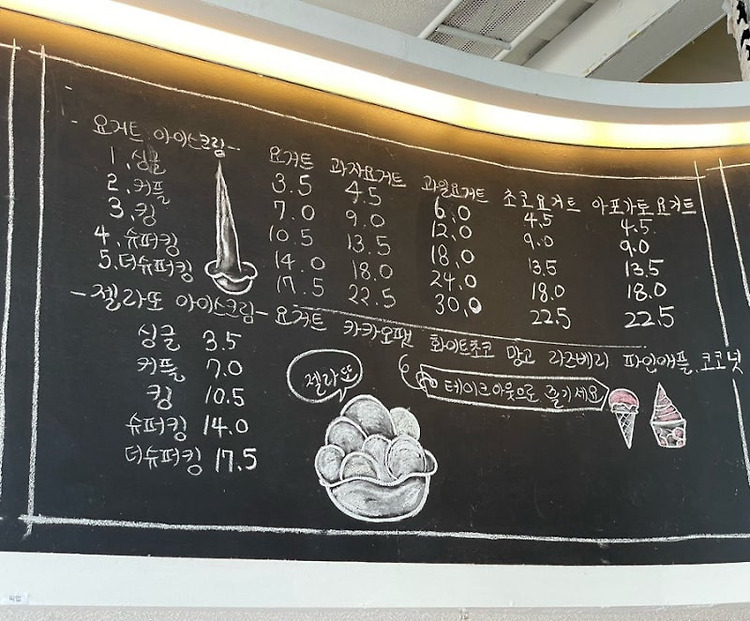 요거트 아이스크림 -
요거트 과자요거트 과일요거트 초코요거트 아포가토요거트
1. 싱글 3.5 4.5 6.0 4.5 4.5
2. 커플 7.0 9.0 12.0 9.0 9.0
3. 킹 10.5 13.5 18.0 13.5 13.5
4. 슈퍼킹 14.0 18.0 24.0 18.0 18.0
5. 더슈퍼킹 17.5 22.5 30.0 22.5 22.5
- 젤라또 아이스크림 - 요거트 카카오팬 화이트초코 망고 라즈베리 파인애플, 코코넛
싱글 3.5
커플 7.0
킹 10.5
슈퍼킹 14.0
더슈퍼킹 17.5
젤라또
테이크아웃으로 즐기세요